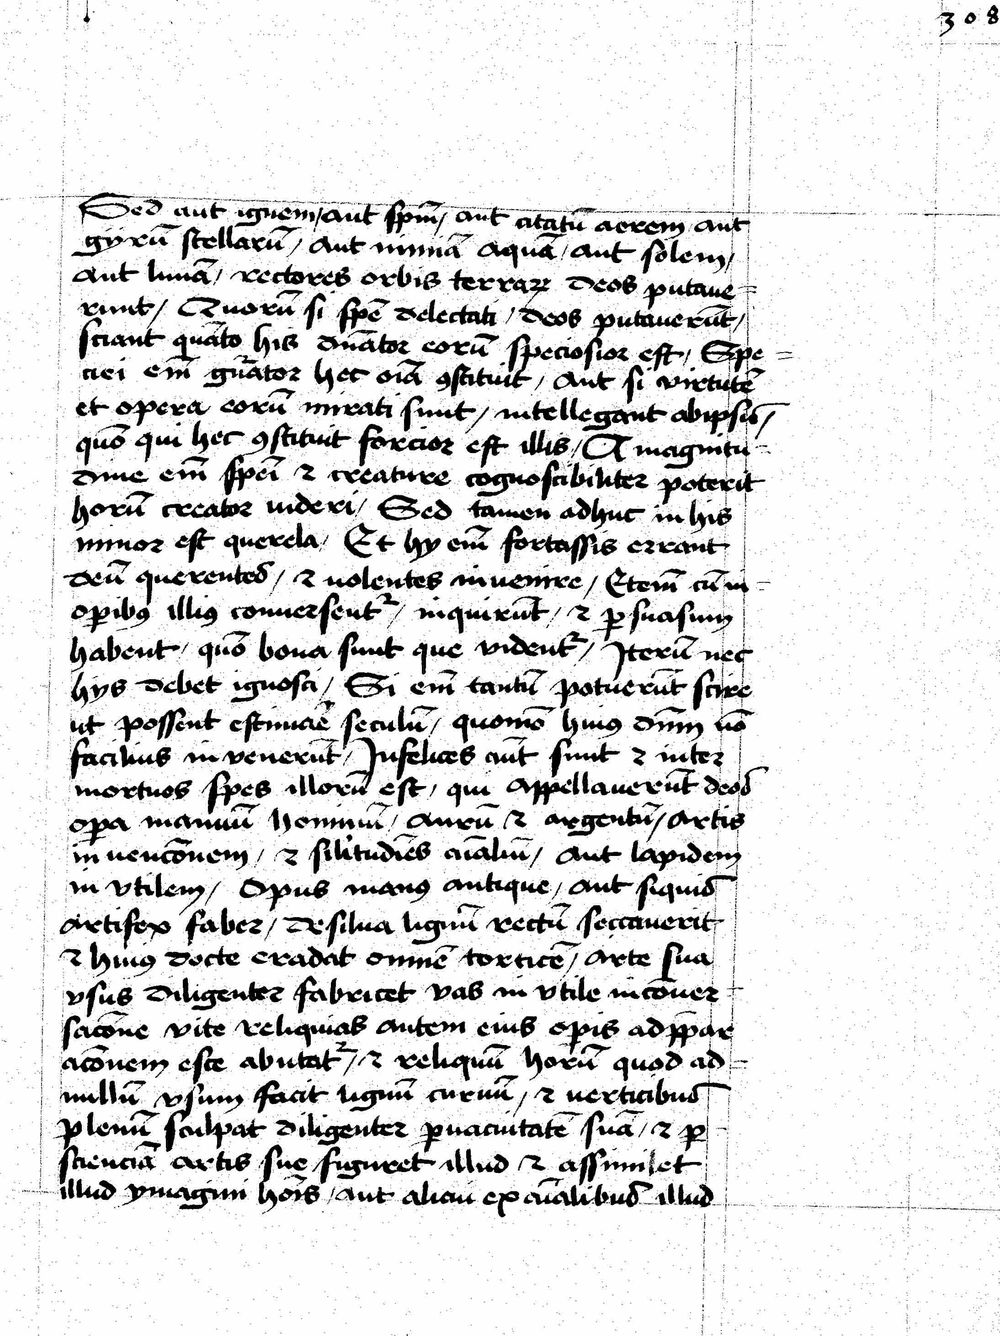 308
Sed aut ignem / aut spm̄ / aut citatū aerem aut
gyrū stellarū / aut nimiā aquā / aut solem /
aut lunā / rectores orbis terraꝝ deos putaue=
runt / Quorū si spē delectati / deos putauerūt /
sciant quāto his dn̄ator eorū speciosior est / Spe=
ciei em̄ gn̄ator hec oīa ꝯstituit / Aut si virtutē
et opera eorū mirati sunt / intellegant abipsis /
quō qui hec ꝯstituit forcior est illis / A magnitu=
dine em̄ spēi ⁊ creature cognoscibiliter poterit
horū creator uideri / Sed tamen adhuc in his
minor est querela / Et hy em̄ fortassis errant
deū querentes / ⁊ uolentes inuenire / Etem̄ cū in=
oꝑibꝰ illiꝰ conuersentr̄ / inquirūt / ⁊ ꝑsuasum
habent / quō bona sunt que vident̄r / Iterū nec
hys debet ignosci / Si em̄ tantū potuerūt scire
ut possent estimāē seculū / quomō huiꝰ dn̄m nō
facilius inuenerūt / Infelices aūt sunt ⁊ inter
mortuos spes illorū est / qui appellauerūt deos
oꝑa manuū hominū / aurū ⁊ argentū / artis
inuencōnem / ⁊ silitudīes aīaliū / aut lapidem
in vtilem / Opus manꝰ antique / aut siquid
artifex faber / de silua lignū rectū seccauerit
⁊ huiꝰ docte eradat omnē corticē / arte sua
vsus diligenter fabricet vas in vtile in cōuer=
sacōne vite reliquias autem eius oꝑis ad p̄par
acōnem esce abutat̄r / ⁊ reliquū horū quod ad=
nullū vsum facit lignū curuū / ⁊ verticibus
plenū sculpat diligenter ꝑ uacuitatē suā / ⁊ ꝑ=
scienciā artis sue figuret illud ⁊ assimilet
illud ymagini hōis / aut alicui ex aīalibus illud